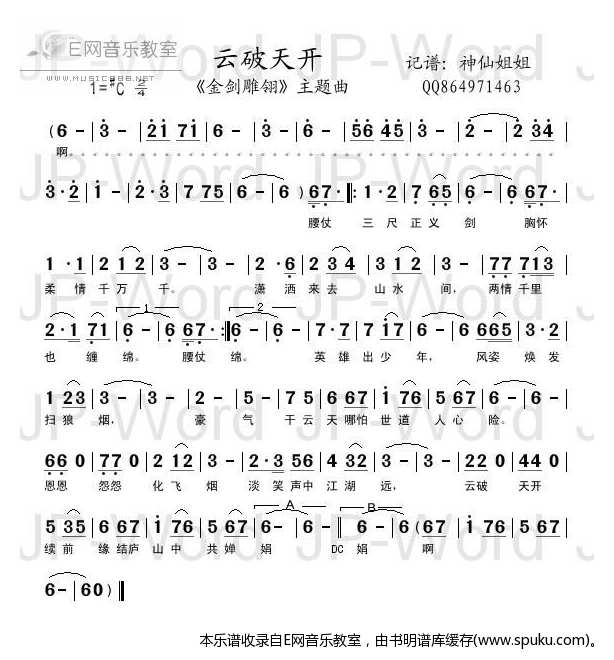 E网音乐教室
WWW.MUSIC888.NET
云破天开
记谱：神仙姐姐
1=#C 2/4
《金剑雕翎》主题曲
QQ864971463
(6 - | 3 - | 21 71 | 6 - | 6 - | 56 45 | 3 - | 2 - | 2 34 |
啊。
3·2 | 1 - | 2·3 | 7 75 | 6 - | 6 ) 67· |: 1·2 | 7 65 | 6 - | 6 67· |
腰仗 三尺正义 剑 胸怀
1·1 | 2 12 | 3 - | 3 - | 2·6 | 2 34 | 1 2 | 3 - | 77 713 |
柔情千万 千。 潇洒来去 山水 间，两情千里
1 2
2·1 71 | 6 - | 6 67· :| 6 - | 6 - | 7·7 | 7 17 | 6 - | 6 665 | 3·2 |
也 缠 绵。 腰仗 绵。 英雄出少 年， 风姿 焕发
1 23 | 3 - | 3 - | 2 - | 5 - | 7 5 | 6 67 | 1 76 | 5 67 | 6 - |
扫狼 烟， 豪 气 干云天哪怕 世道 人心 险。
66 0 | 77 0 | 2 12 | 3 - | 2·3 56 | 4 32 | 3 - | 3 - | 22 0 | 44 0 |
恩恩 怨怨 化飞 烟 淡 笑声中 江湖 远， 云破 天开
A B
5 35 | 6 67 | 1 76 | 5 67 | 6 - | 6 - || 6 - | 6 (67 | 1 76 | 5 67 |
续前 缘结庐 山中 共婵 娟 DC娟 啊
6 - | 60) |
JP-Word JP-Word
JP-Word JP-Word
JP-Word JP-Word
JP-Word JP-Word
JP-Word JP-Word
本乐谱收录自E网音乐教室，由书明谱库缓存(www.spuku.com)。